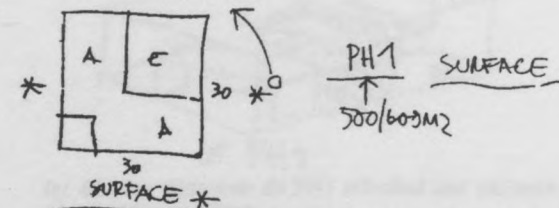 A
C
*
30
*
A
30
SURFACE *
PH1
SURFACE
500/600M2